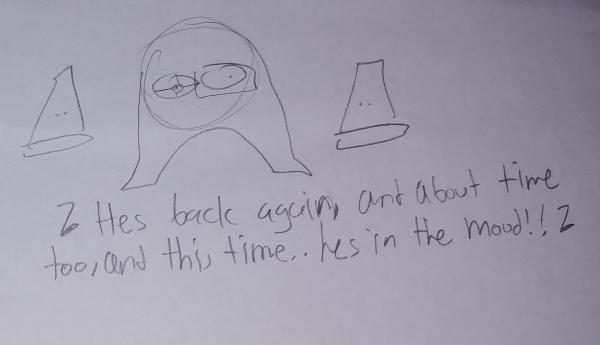 2 Hes back again, and about time
too, and this time.. hes in the mood!! 2